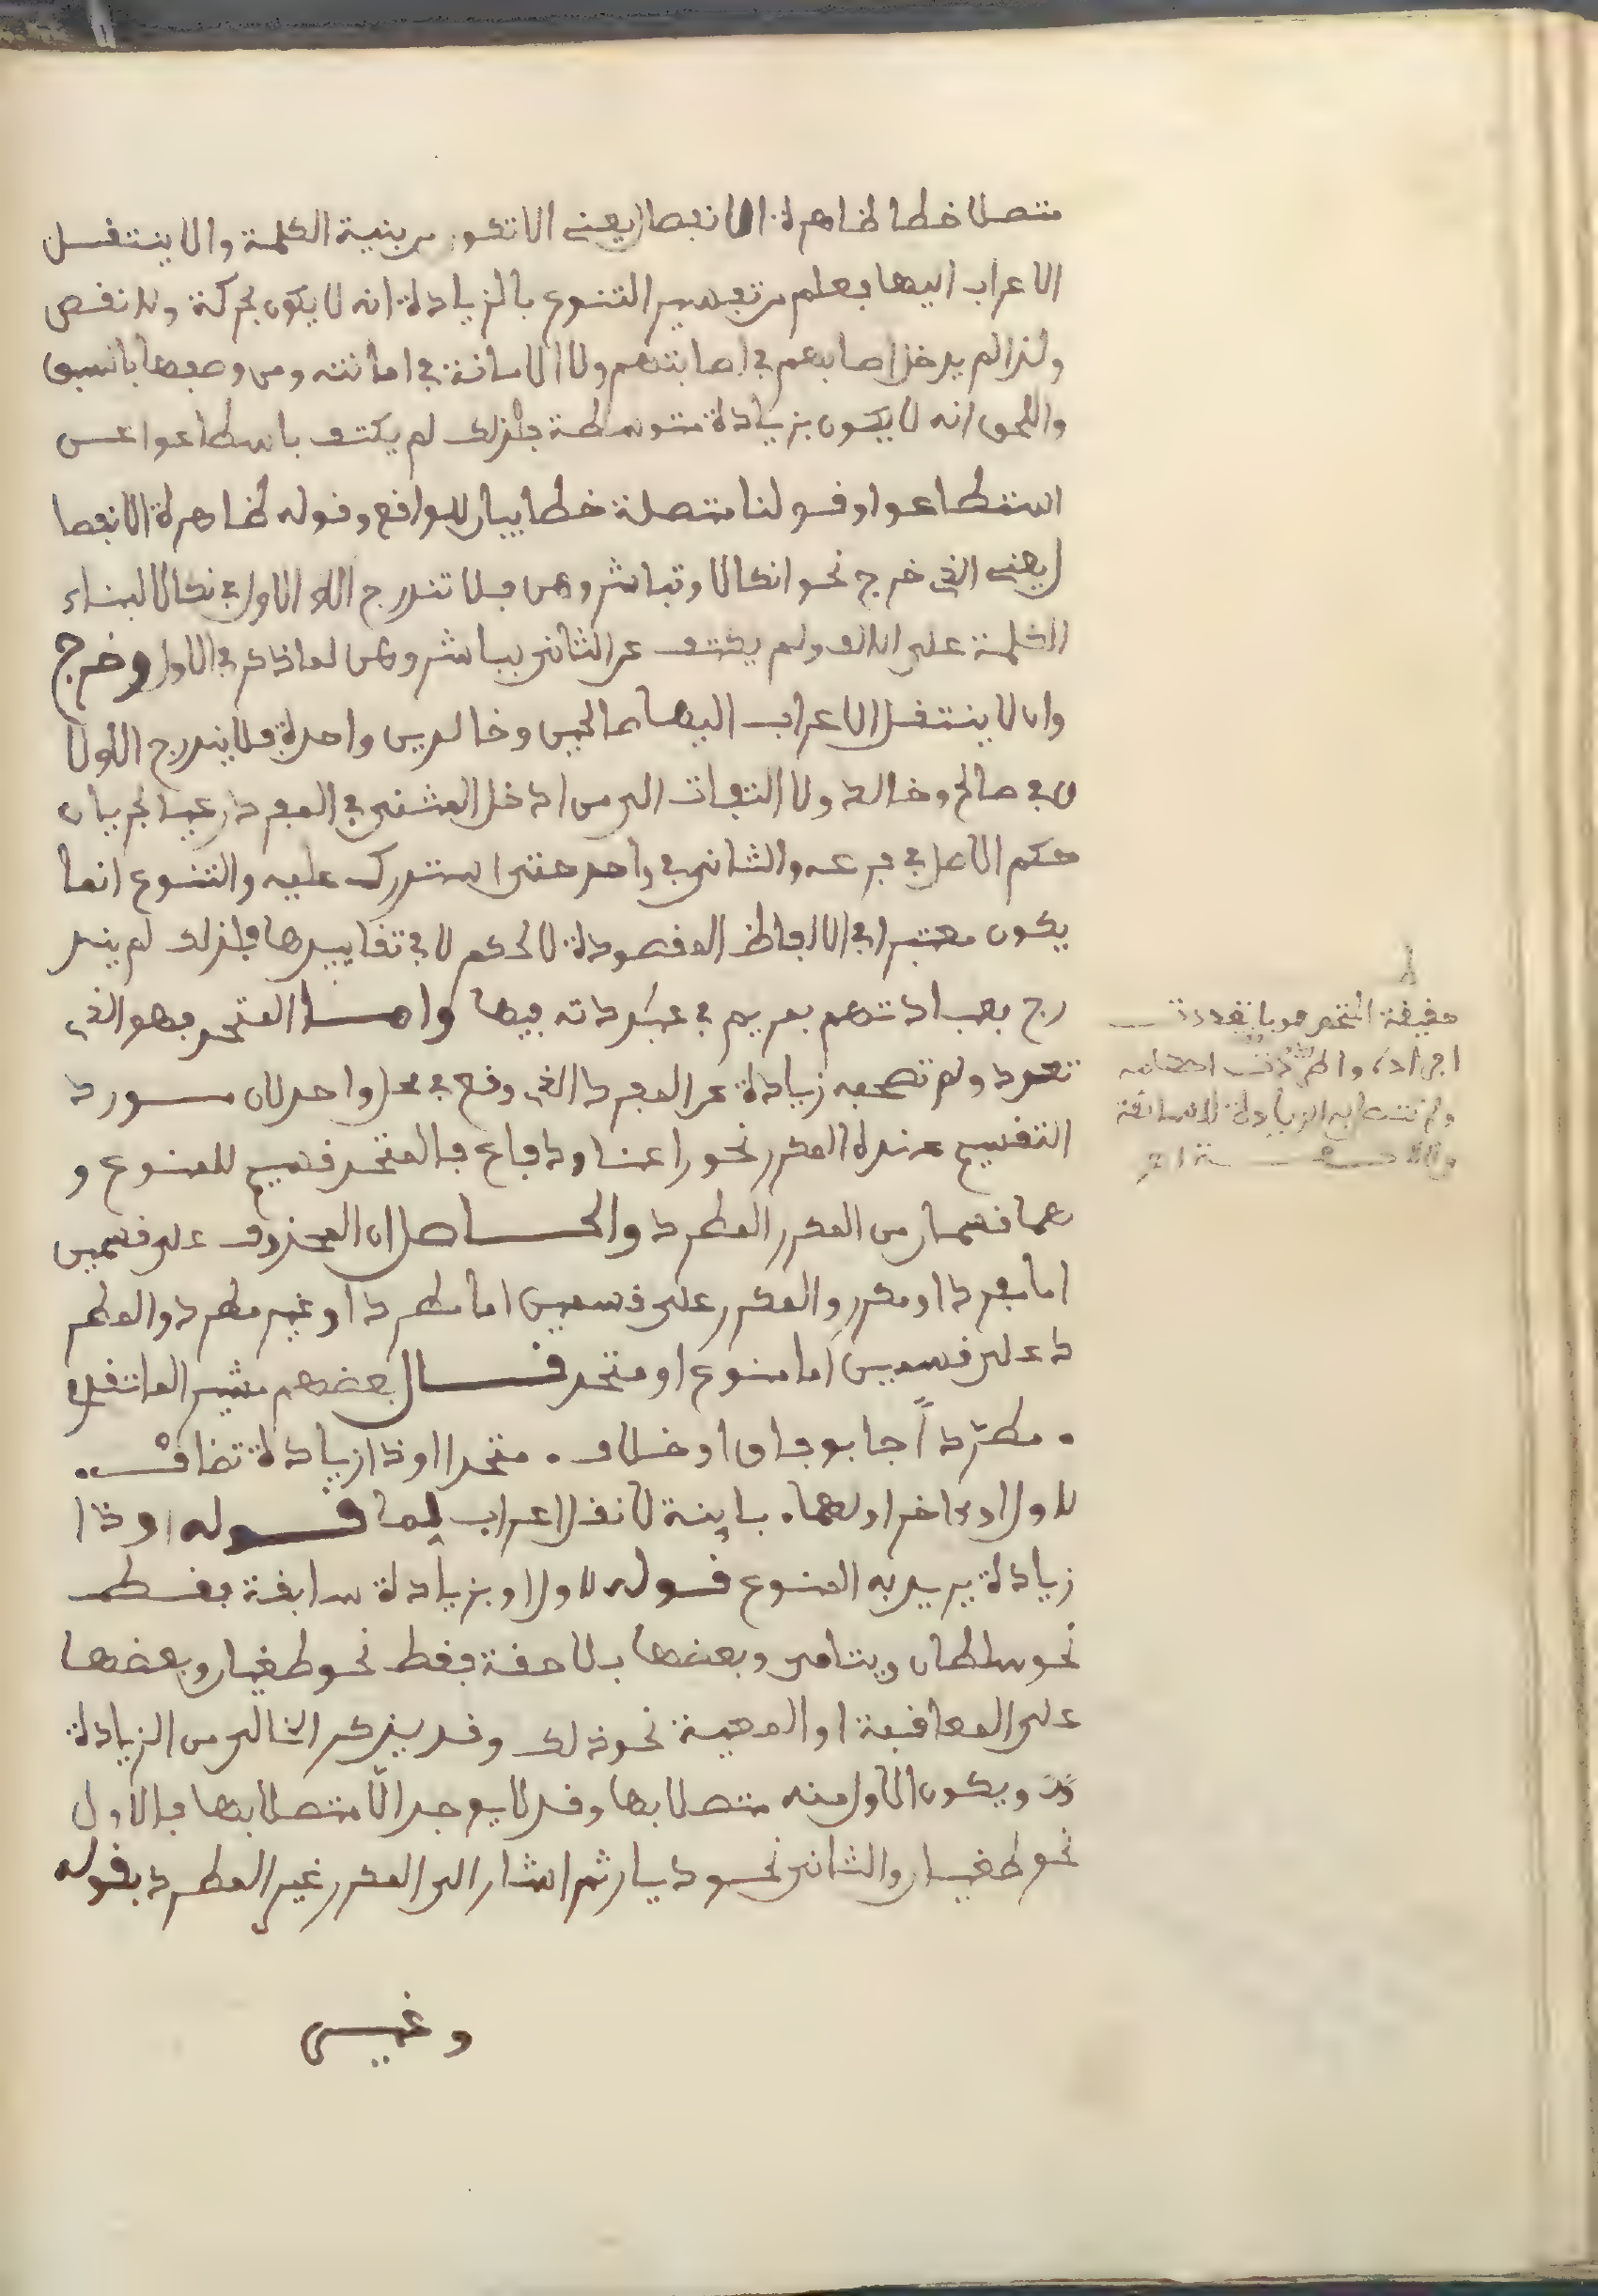 متصلا خطا ظاهرة الانفصال يعنى الا تكون من بنية الكلمة والا ينتقل
الاعراب اليها فعلم من تفسير التنوع بالزيادة انه لا يكون بحركة ولا نقص
ولذا لم يدخل اصابهم في اصابتهم ولا الامانة في امانته ومن وصفها بالسبق
واللحوق انه لا يكون بزيادة متوسطة فلذلك لم يكتف باسطاعوا عن
استطاعوا وقولنا متصلة خطا بيان للواقع وقوله ظاهرة الانفصا
ل يعنى الخ خرج نحو انكالا وتباشروهن فلا تندرج الاولى في نكالا لبناء
الكلمة على الالف ولم يكتف عن الثانى بباشروهن لما ذكر في الاول وخرج
وان لا ينتقل الاعراب اليها صالحين وخالدين واحدة فلا يندرج الاولا
ن في صالح وخالد ولا التفات الى من ادخل المثنى في المفرد رعيا لجريان
حكم الاصل في فرعه والثانى في واحد حتى استدرك عليه والتنوع انما
يكون معتبرا في الالفاظ المقصودة لالحكم لا في تقاييدها فلذلك لم يند
رج بعبادتهم بمريم في عبادته فيها واما المتحد فهو الذى
تعدد ولم تصحبه زيادة عن المفرد الذى وقع في محل واحد لان مورد
التقسيم عنده المكرر نحو راعنا ودفاع فالمتحد قسيم للمنوع و
هما قسمان من المكرر المطرد والحاصل ان المحذوف على قسمين
اما مفرد او مكرر والمكرر على قسمين اما مطرد او غير مطرد والمطر
د على قسمين اما منوع او متحد قال بعضهم مشير الما تقدم
. مطردا جا بوفاق او خلاف . متحدا او ذا زيادة تضاف .
للاول او لاخر او لهما . باينة لا نقل اعراب لما قوله او ذا
زيادة يريد به المنوع قوله للاول او بزيادة سابقة فقط
نحو سلطان ويتامى وبعضها بلاحقة فقط نحو طغيان وبعضها
على المعاقبة او المعية نحو ذلك وقد يذكر الخالى من الزيادة
ويكون الاول منه متصلا بها وقد لا يوجد الا متصلا بها فالاول
نحو طغيان والثانى نحو ديار ثم اشار الى المكرر غير المطرد بقوله
وغير
حقيقة المتحد هو ما تعددت
افراده واطردت احكامه
ولم تتصل به الزيادة السابقة
واللاحقة اهـ